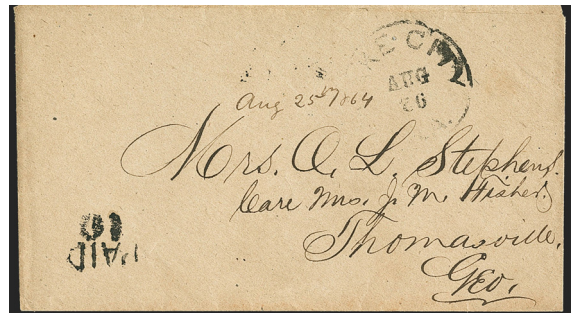 LAKE CITY
AUG
26
Aug 25th 1864
Mrs. O. L. Stephens.
Care Mrs. J. M. Fisher,
Thomasville,
Geo.
PAID
10